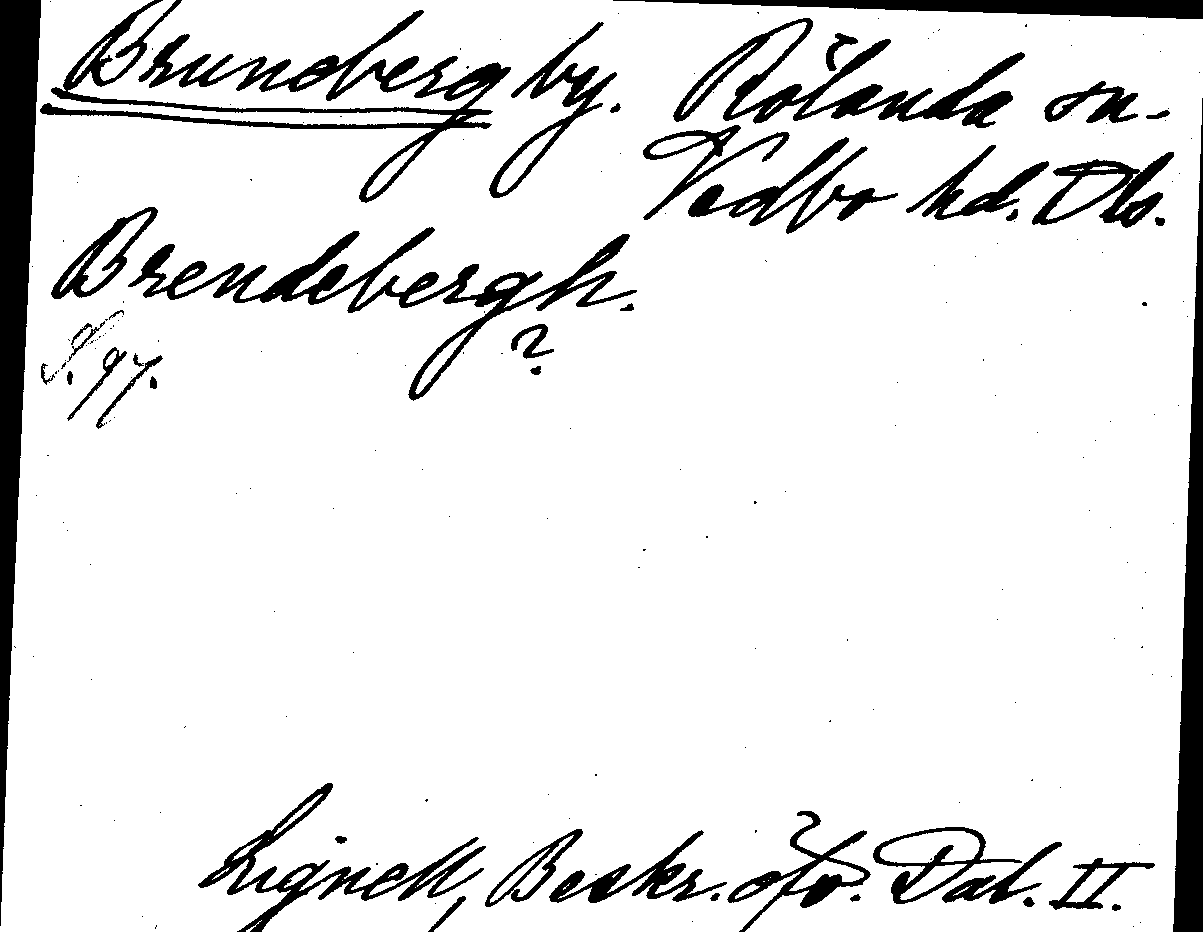 Bruneberg by. Rölanda sn.
Vedbo hd. Dls.
Brendebergh.
S. 97. ?
Lignell, Beskr. öfv. Dal. II.